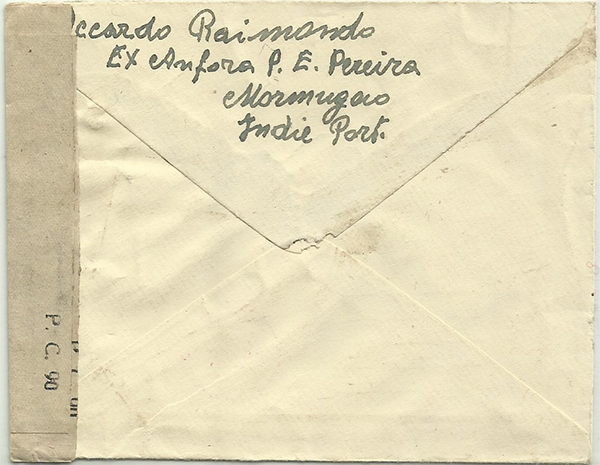 ccardo Raimondo
Ex Anfora P. E. Pereira
Mormugao
Indie Port.
P. C. 90